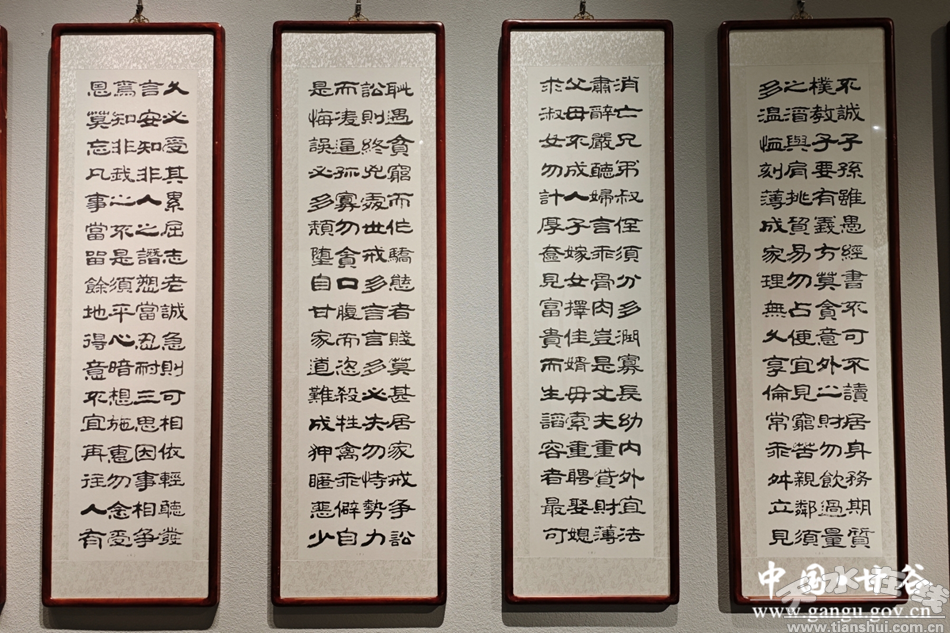 不誠子孫雖愚經書不可不讀居身務期質
樸教子要有義方莫貪意外之財勿飲過量
之酒與肩挑貿易勿占便宜見窮苦親鄰須
多温恤刻薄成家理無久享倫常乖舛立見
消亡兄弟叔侄須分多潤寡長幼内外宜法
肅辭嚴聽婦言乖骨肉豈是丈夫重貲財薄
父母不成人子嫁女擇佳婿毋索重聘娶媳
求淑女勿計厚奩見富貴而生諂容者最可
耻遇貧窮而作驕態者賤莫甚居家戒争訟
訟則終兇處世戒多言言多必失勿恃勢力
而凌逼孤寡勿貪口腹而恣殺牲禽乖僻自
是悔誤必多頹墮自甘家道難成狎暱惡少
久必受其累屈志老誠急則可相依輕聽發
言安知非人之譖愬當忍耐三思因事相争
焉知非我之不是須平心暗想施惠勿念受
恩莫忘凡事當留餘地得意不宜再往人有
中国甘谷
www.gangu.gov.cn
天水在线
www.tianshui.com.cn